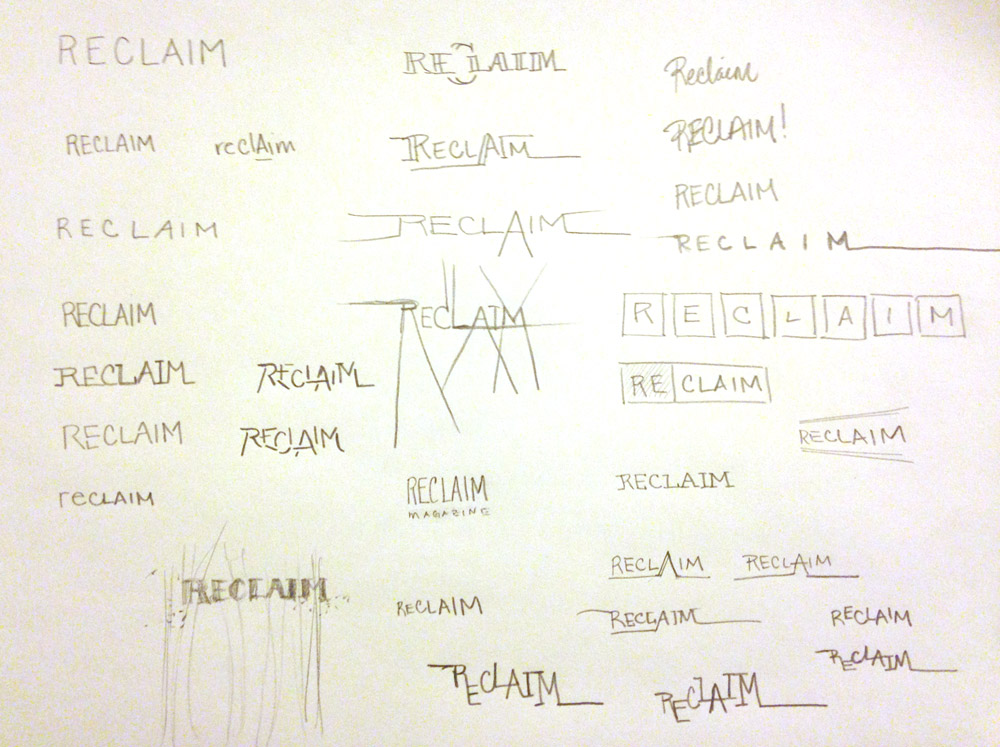 RECLAIM
RECLAIM
Reclaim
RECLAIM reclAim
RECLAIM
RECLAIM!
RECLAIM
RECLAIM
RECLAIM
RECLAIM
RECLAIM
RECLAIM
RECLAIM
RECLAIM RECLAIM
RECLAIM
RECLAIM RECLAIM
RECLAIM
reCLAIM
RECLAIM
MAGAZINE
RECLAIM
RECLAIM
RECLAIM RECLAIM
RECLAIM
RECLAIM
RECLAIM
RECLAIM
RECLAIM
RECLAIM